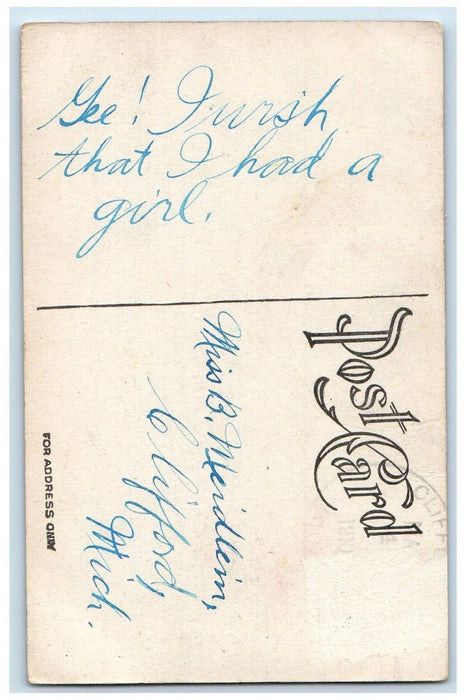 Gee! I wish
that I had a
girl.
Post Card
Miss B. Meidlein,
Clifford,
Mich.
FOR ADDRESS ONLY
CLIFF